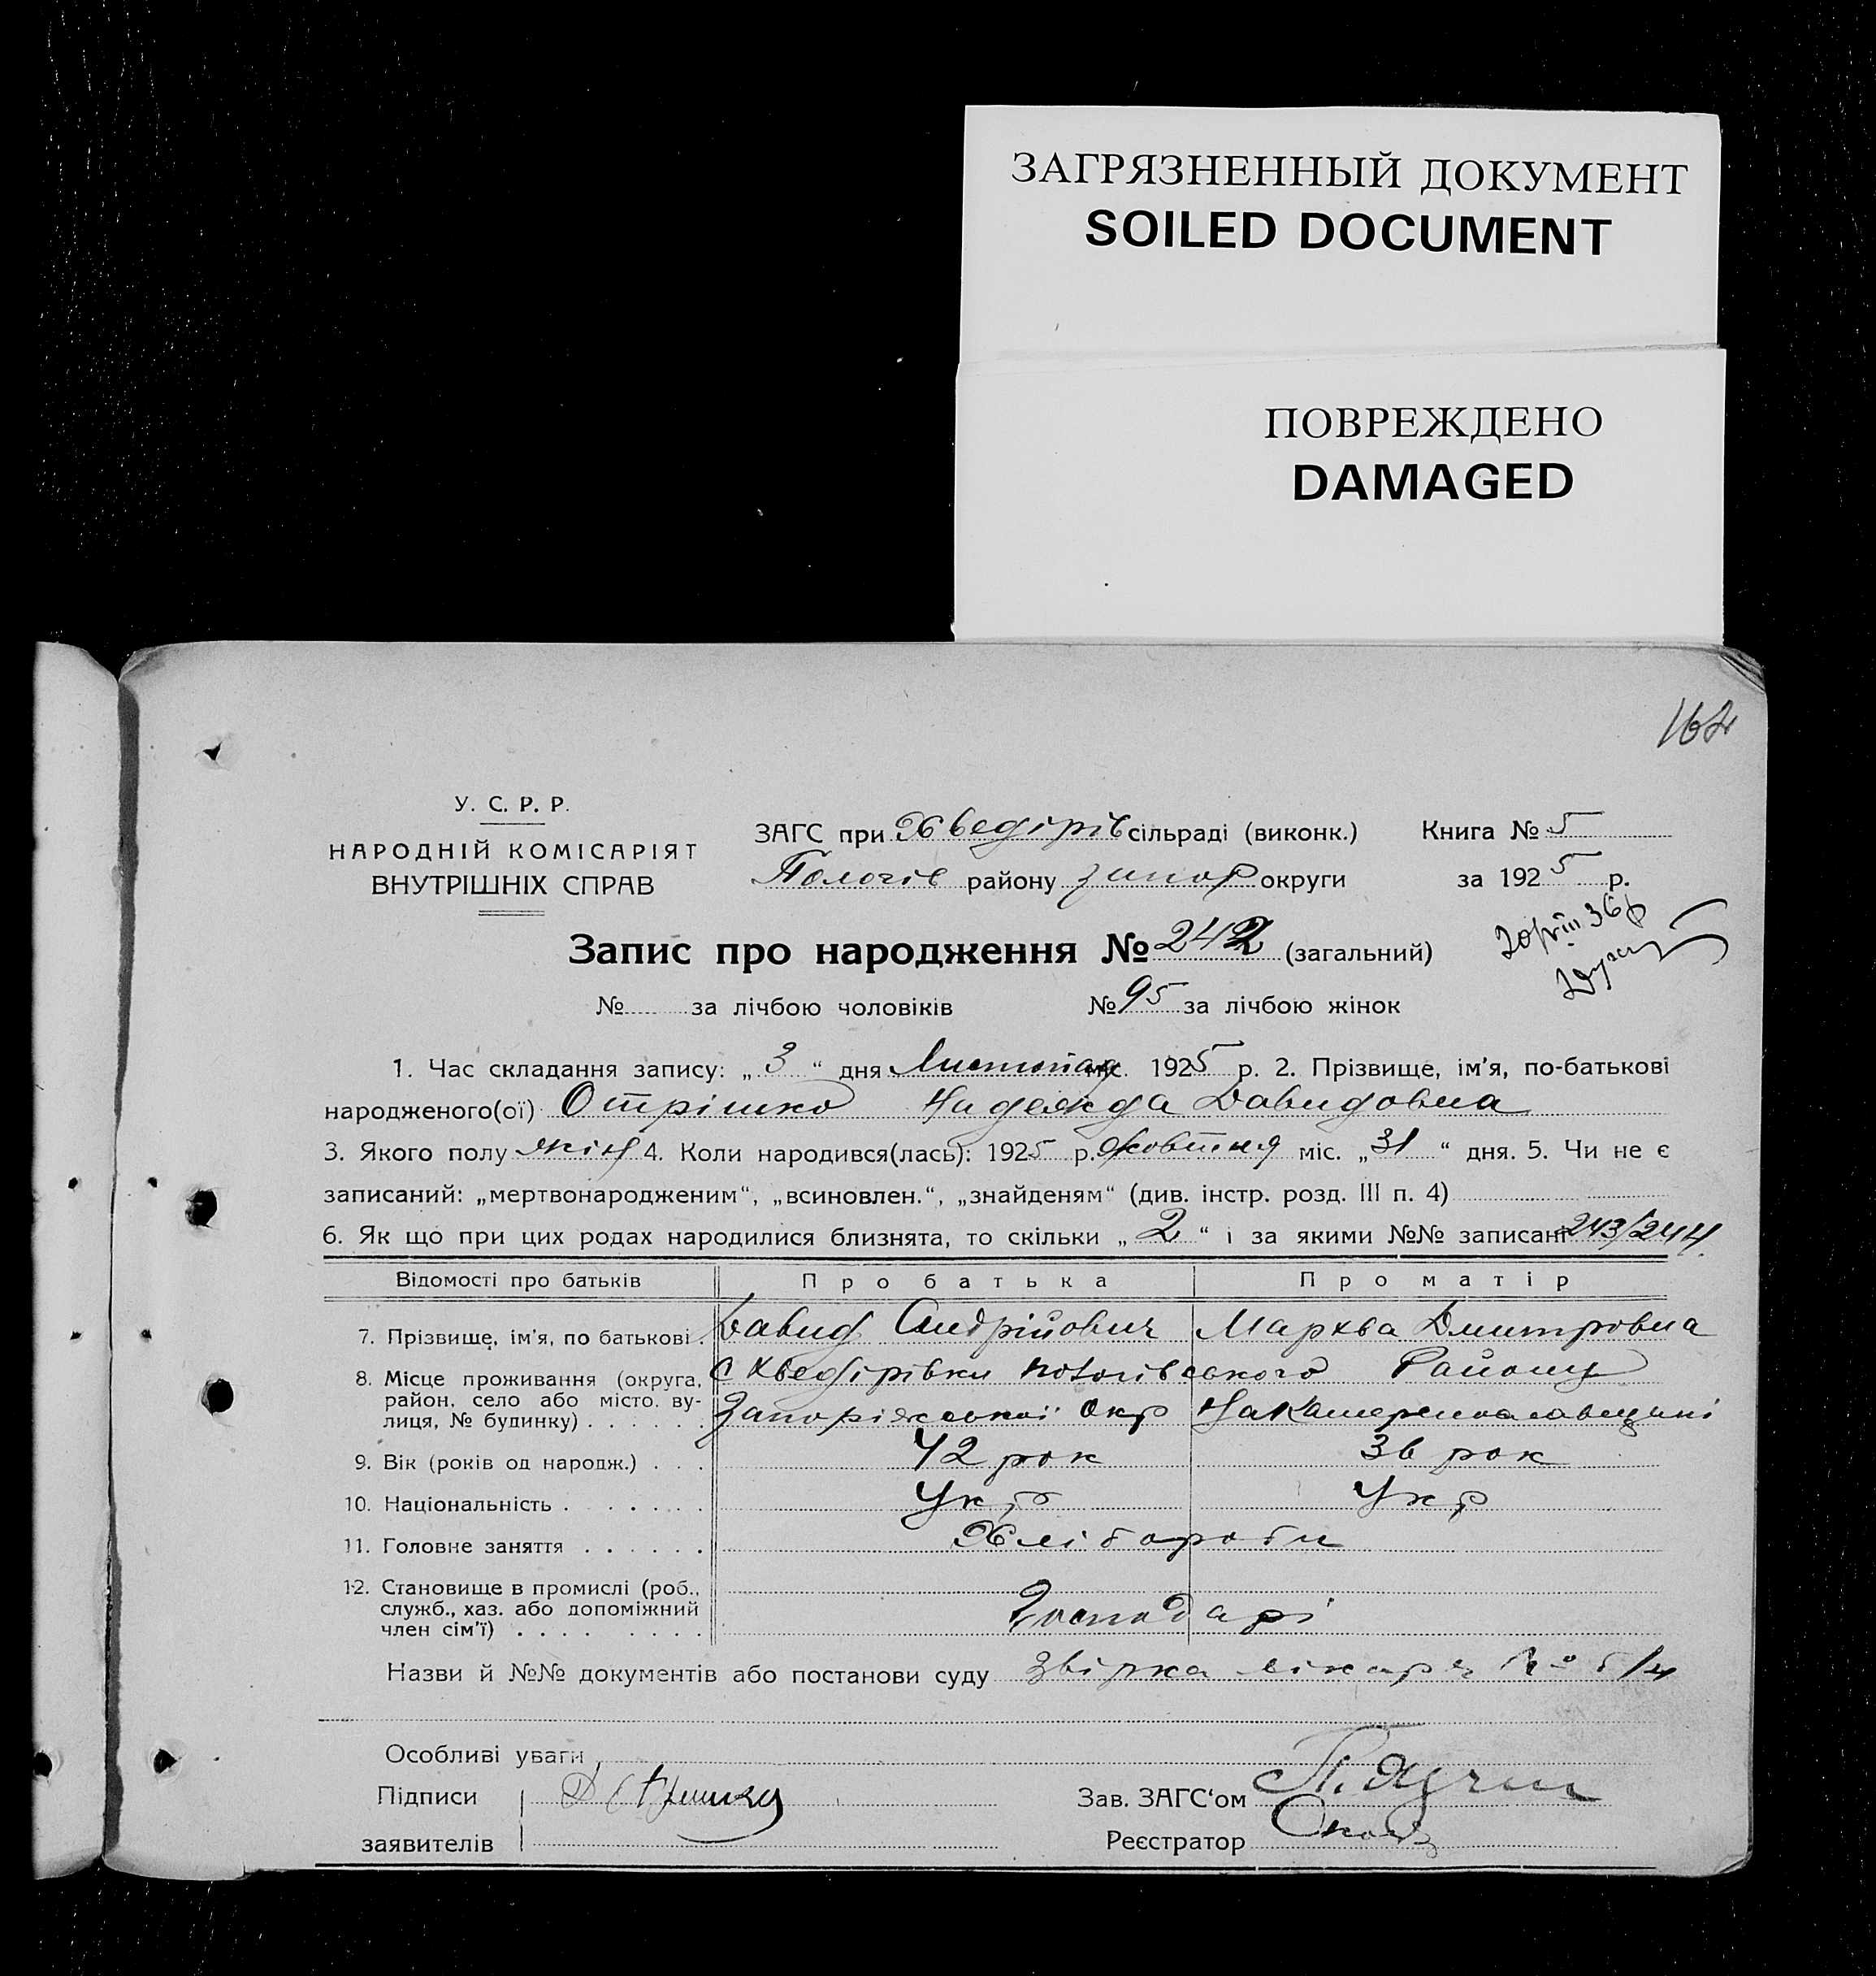 ЗАГРЯЗНЕННЫЙ ДОКУМЕНТ
SOILED DOCUMENT
ПОВРЕЖДЕНО
DAMAGED
У. С. Р. Р.
НАРОДНІЙ КОМІСАРІЯТ
ВНУТРІШНІХ СПРАВ
ЗАГС при Хведірів сільраді (виконк.) Книга № 5
Пологів району запор округи за 1925 р.
Запис про народження № 242 (загальний)
№ за лічбою чоловіків № 95 за лічбою жінок
1. Час складання запису: „ 3 “ дня Листопад міс. 1925 р. 2. Прізвище, ім'я, по-батькові
народженого(ої) Отрішко Надежда Давидовна
3. Якого полу жін 4. Коли народився(лась): 1925 р. Жовтня міс. „ 31 “ дня. 5. Чи не є
записаний: „мертвонародженим“, „всиновлен.“, „знайденям“ (див. інстр. розд. III п. 4)
6. Як що при цих родах народилися близнята, то скільки „ 2 “ і за якими №№ записані 243/244.
Відомості про батьків Про батька Про матір
7. Прізвище, ім'я, по батькові Давид Андрійович Мархва Дмитровна
8. Місце проживання (округа, с Хведірівки пологівського Району
район, село або місто, ву-
лиця, № будинку) Запоріжської окр На Катеринославщині
9. Вік (років од народж.) 42 рок 36 рок
10. Національність Укр Укр
11. Головне заняття Хлібороби
12. Становище в промислі (роб.,
служб., хаз. або допоміжний
член сім'ї) Господарі
Назви й №№ документів або постанови суду Звірка лікаря № б/н
Особливі уваги
Підписи Зав. ЗАГС'ом
заявителів Реєстратор